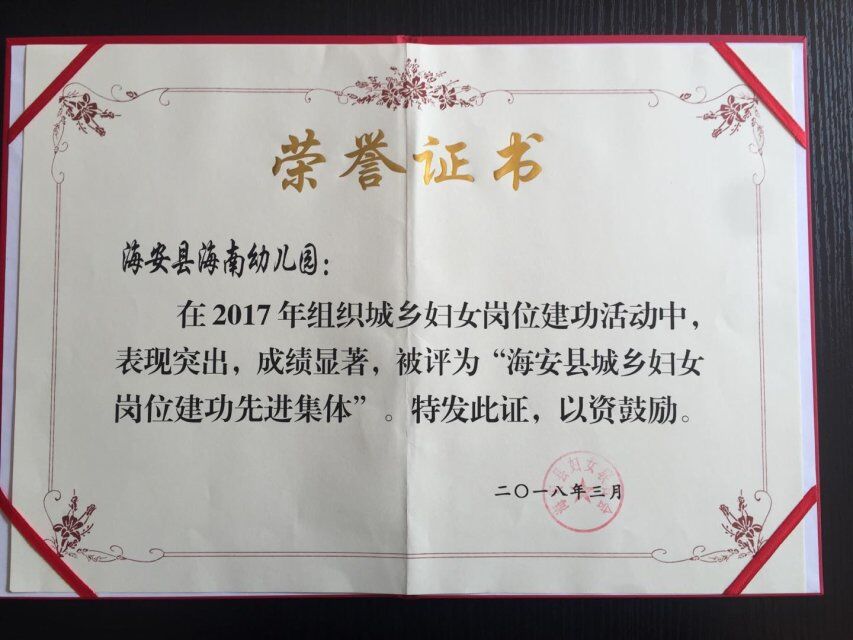 荣誉证书
海安县海南幼儿园：
在2017年组织城乡妇女岗位建功活动中，
表现突出，成绩显著，被评为“海安县城乡妇女
岗位建功先进集体”。特发此证，以资鼓励。
二〇一八年三月